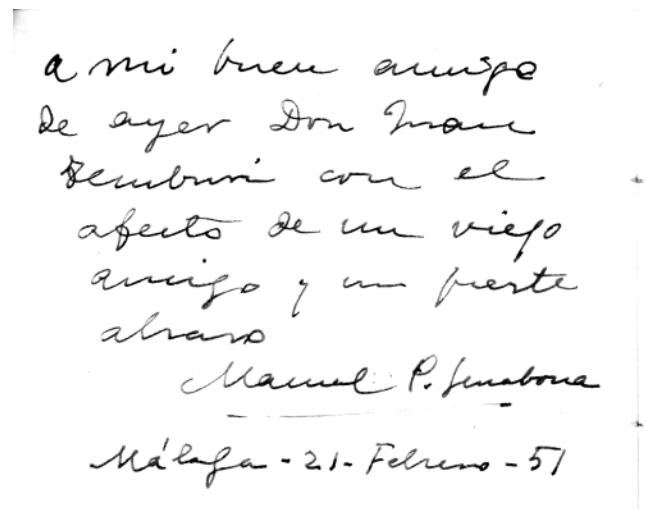 a mi buen amigo
de ayer Don Juan
Temburi con el
afecto de un viejo
amigo y un fuerte
abrazo
Manuel P.
Málaga - 21 - Febrero - 51